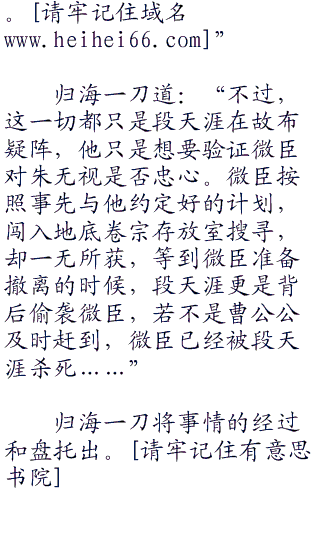 。[请牢记住域名
www.heihei66.com]”
归海一刀道：“不过，
这一切都只是段天涯在故布
疑阵，他只是想要验证微臣
对朱无视是否忠心。微臣按
照事先与他约定好的计划，
闯入地底卷宗存放室搜寻，
却一无所获，等到微臣准备
撤离的时候，段天涯更是背
后偷袭微臣，若不是曹公公
及时赶到，微臣已经被段天
涯杀死……”
归海一刀将事情的经过
和盘托出。[请牢记住有意思
书院]